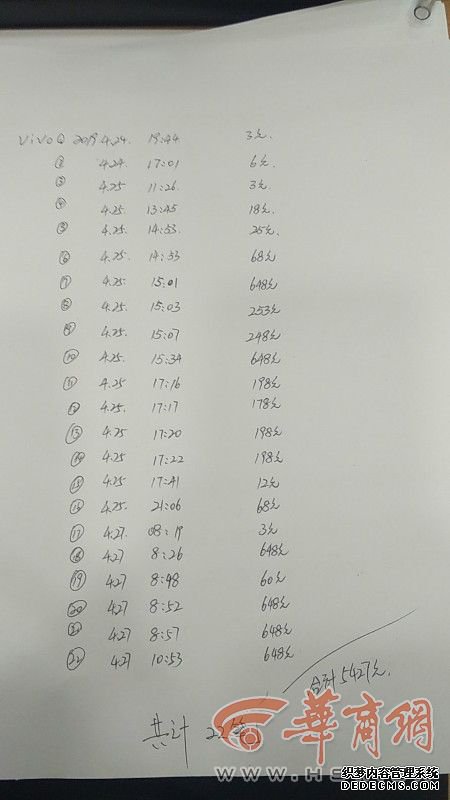 vivo① 2019 4.24. 19:44 3元.
② 4.24 17:01 6元.
③ 4.25 11:26. 3元.
④ 4.25. 13:45 18元.
⑤ 4.25. 14:53. 25元.
⑥ 4.25. 14:53 68元
⑦ 4.25 15:01 648元
⑧ 4.25 15:03 253元
⑨ 4.25 15:07 248元
⑩ 4.25 15:34 648元
⑪ 4.25 17:16 198元
⑫ 4.25. 17:17 178元
⑬ 4.25 17:20 198元
⑭ 4.25 17:22 198元
⑮ 4.25 17:41 12元
⑯ 4.25. 21:06 68元
⑰ 4.27. 08:19 3元
⑱ 4.27 8:26 648元
⑲ 4.27 8:48 60元
⑳ 4.27 8:52 648元
㉑ 4.27 8:57 648元
㉒ 4.27 10:53 648元
合计5427元.
共计 22笔
华商網
www.H
织梦内容管理系统
DEDECMS.COM